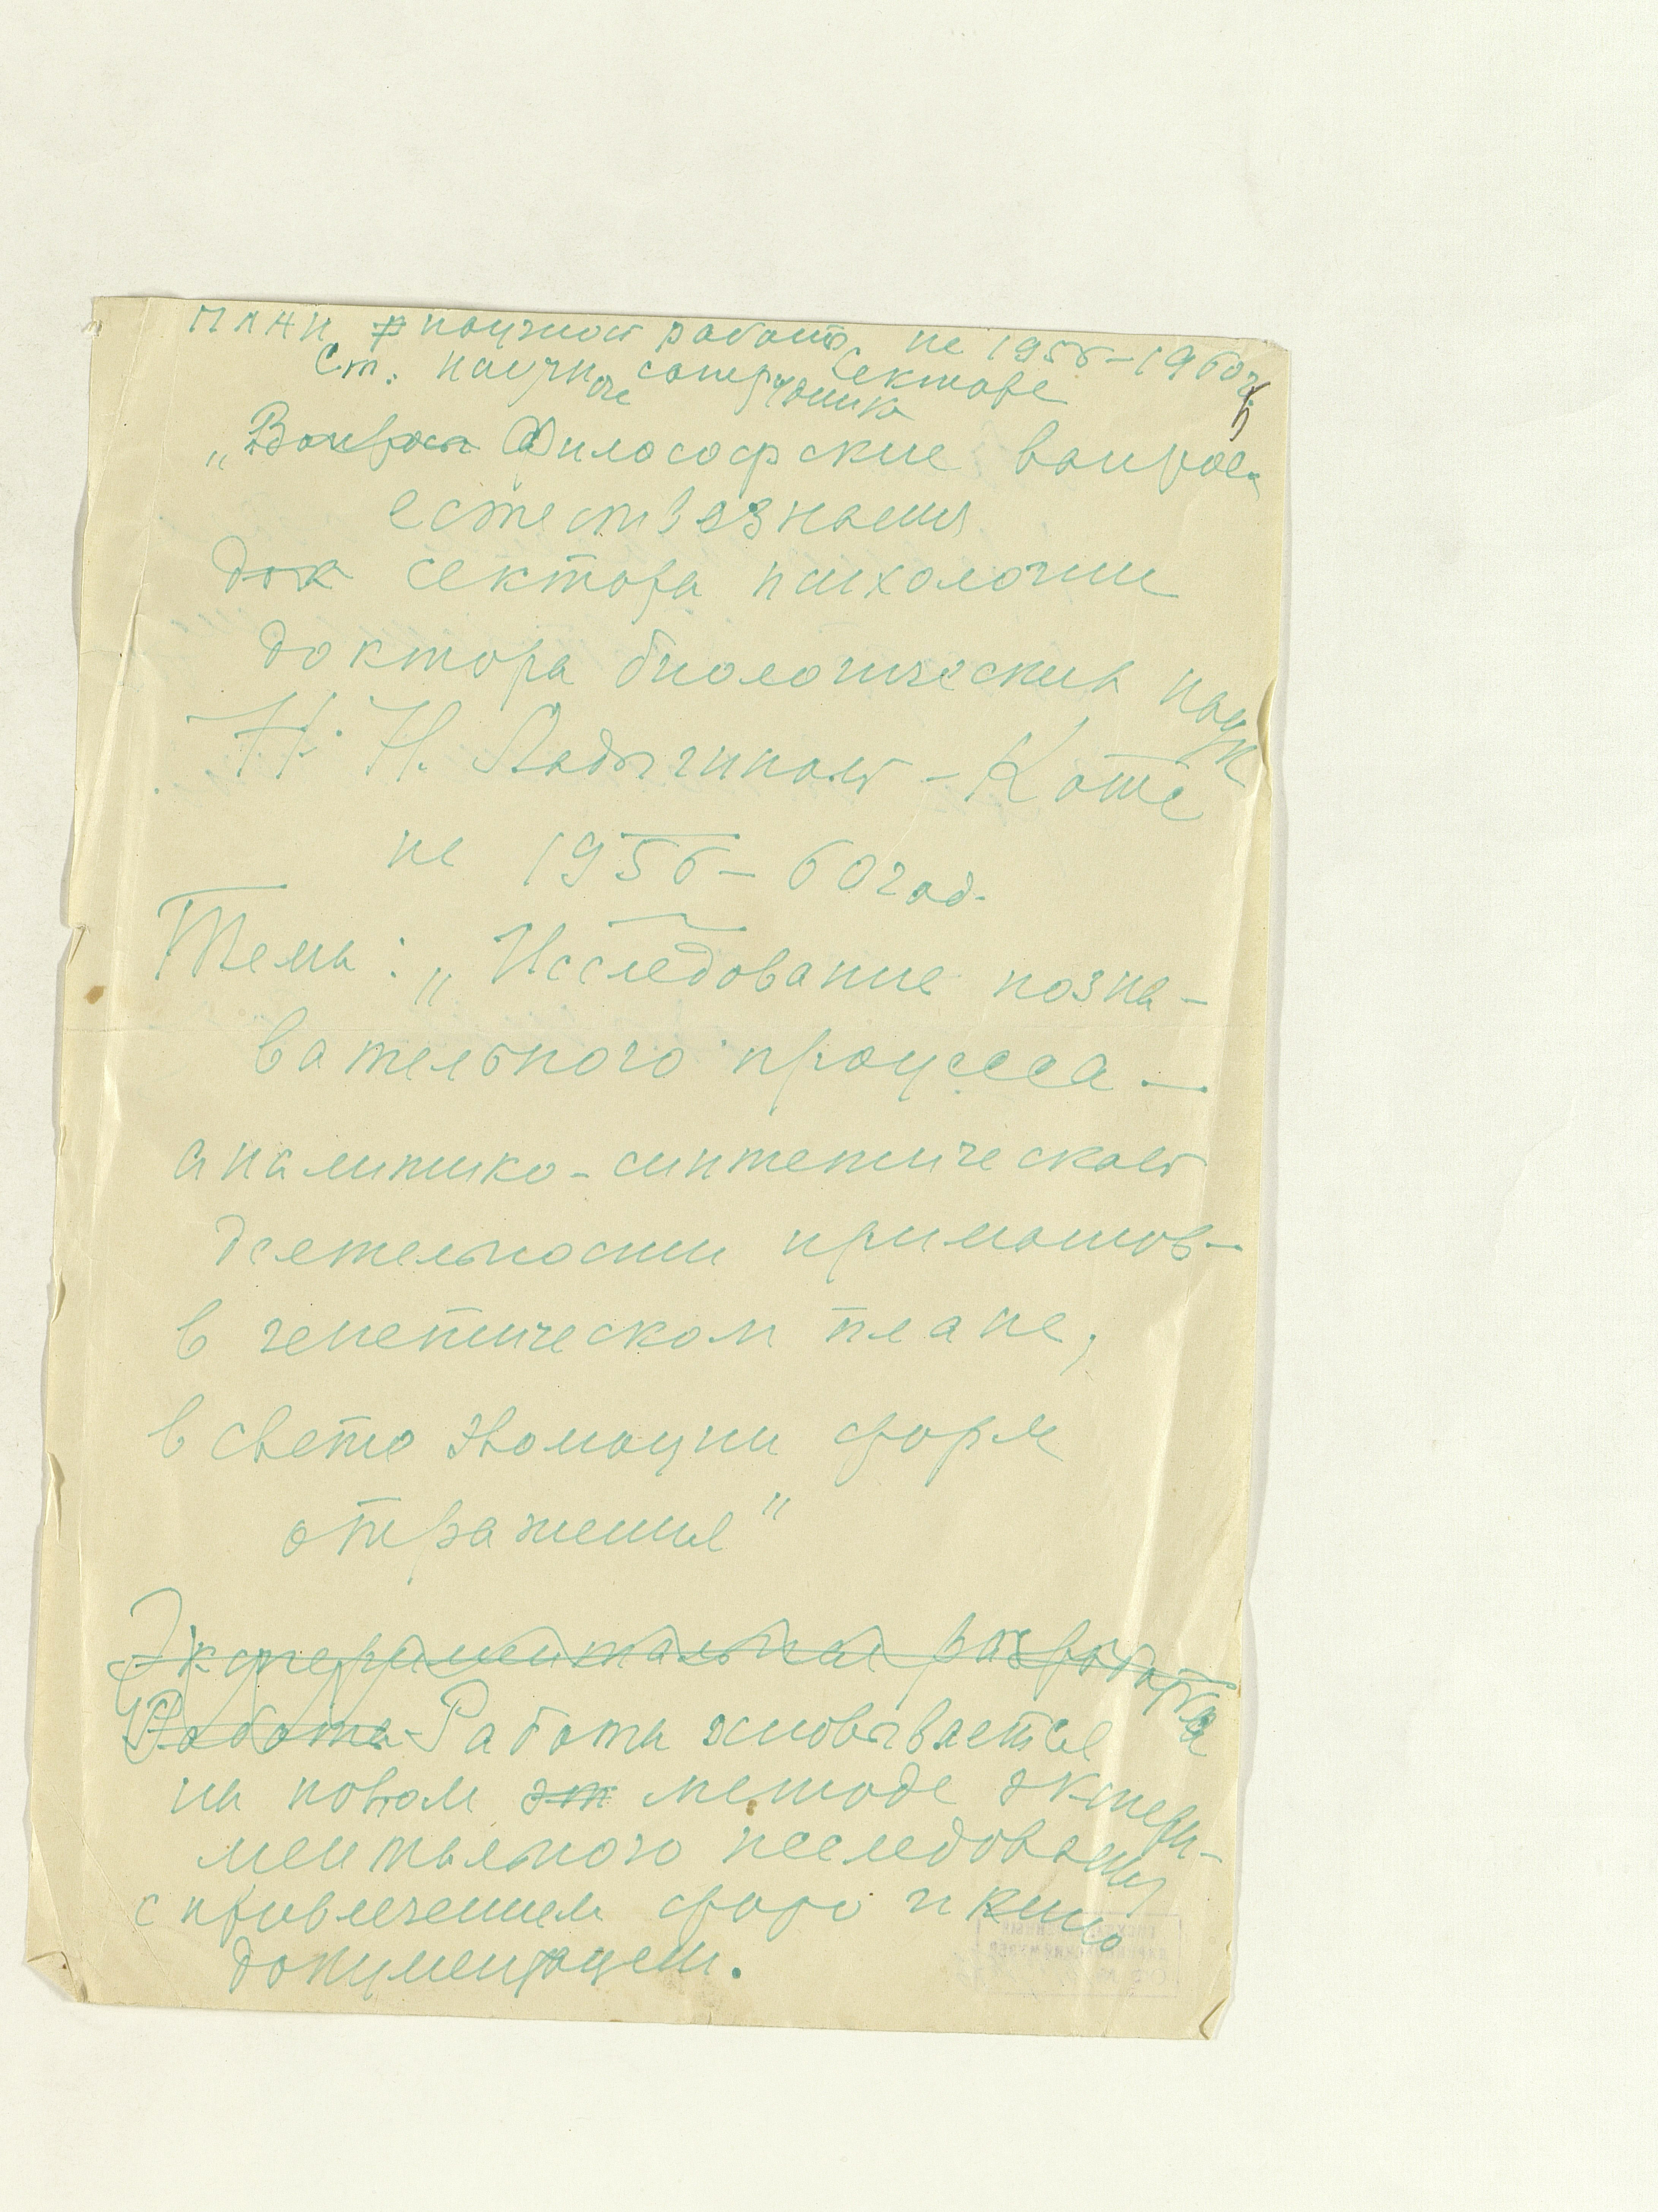 План научной работы на 1956–1960 г.
Ст. научного сотрудника Сектора
„Вопросы Философские вопросы
естествознания
док сектора психологии
доктора биологических наук
Н. Н. Ладыгиной-Котс
на 1956–60 год.
Тема: „Исследование позна-
вательного процесса –
аналитико-синтетической
деятельности приматов –
в генетическом плане,
в свете эволюции форм
отражения"
Экспериментальная разработка
Работа Работа основывается
на новом эт методе экспери-
ментального исследования
с привлечением фото и кино
документации.